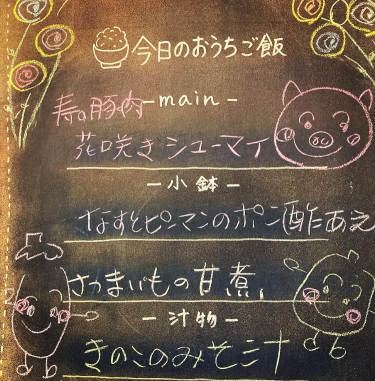 今日のおうちご飯
寿の豚肉 -main-
花咲きシューマイ
-小鉢-
なすとピーマンのポン酢あえ
さつまいもの甘煮
-汁物-
きのこのみそ汁